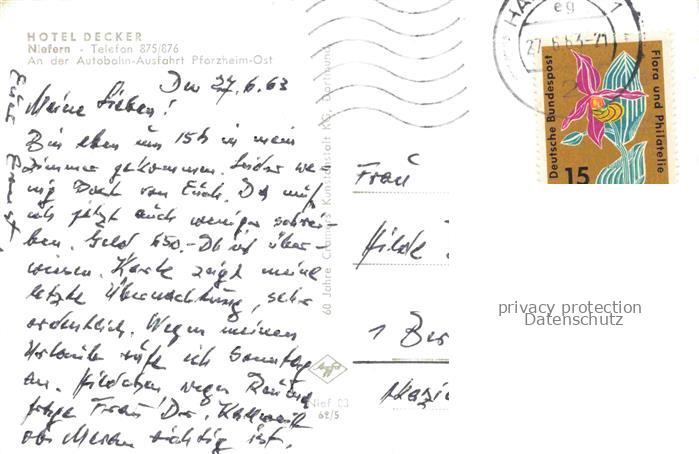 HOTEL DECKER
Niefern - Telefon 875/876
An der Autobahn-Ausfahrt Pforzheim-Ost
Den 27.6.63
Meine Lieben!
Bin eben um 15h in mein
Zimmer gekommen. Leider we-
nig Post von Euch. Da muß
ich jetzt auch weniger schrei-
ben. Geld 650.- DM ist über-
wiesen. Karte zeigt meine
letzte Übernachtung, sehr
ordentlich. Wegen meinem
Urlaub rufe ich Sonntag
an. Hildchen wegen
frage Frau Dr.
ob Meran richtig ist.
Euer Ernst
60 Jahre Cramers Kunstanstalt KG, Dortmund
Agfa
Nief 03
62/5
eg
27.6.63-21
2
Deutsche Bundespost
Flora und Philatelie
15
Frau
Hilde
1 Ber
Akazie
privacy protection
Datenschutz